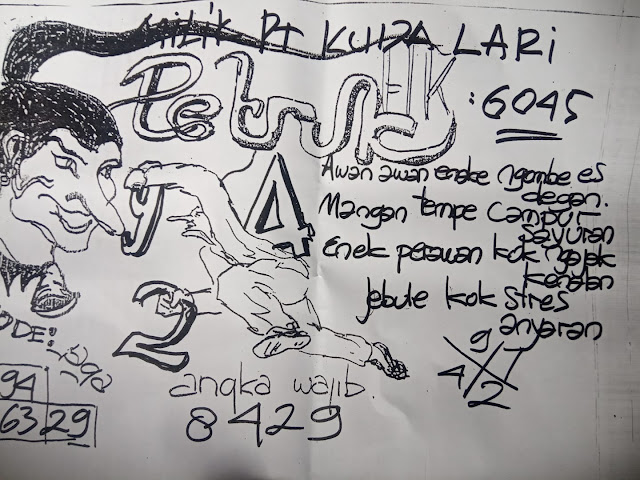 MILIK PT KUDA LARI
: 6045
Awan awan enake ngombe es
degan.
Mangan tempe campur
sayuran
Enek perawan kok ngajak
kenalan
Jebule kok stres
anyaran
9 4
2
9 7
4 2
ODE!
Jaga
94
63 29
angka wajib.
8429